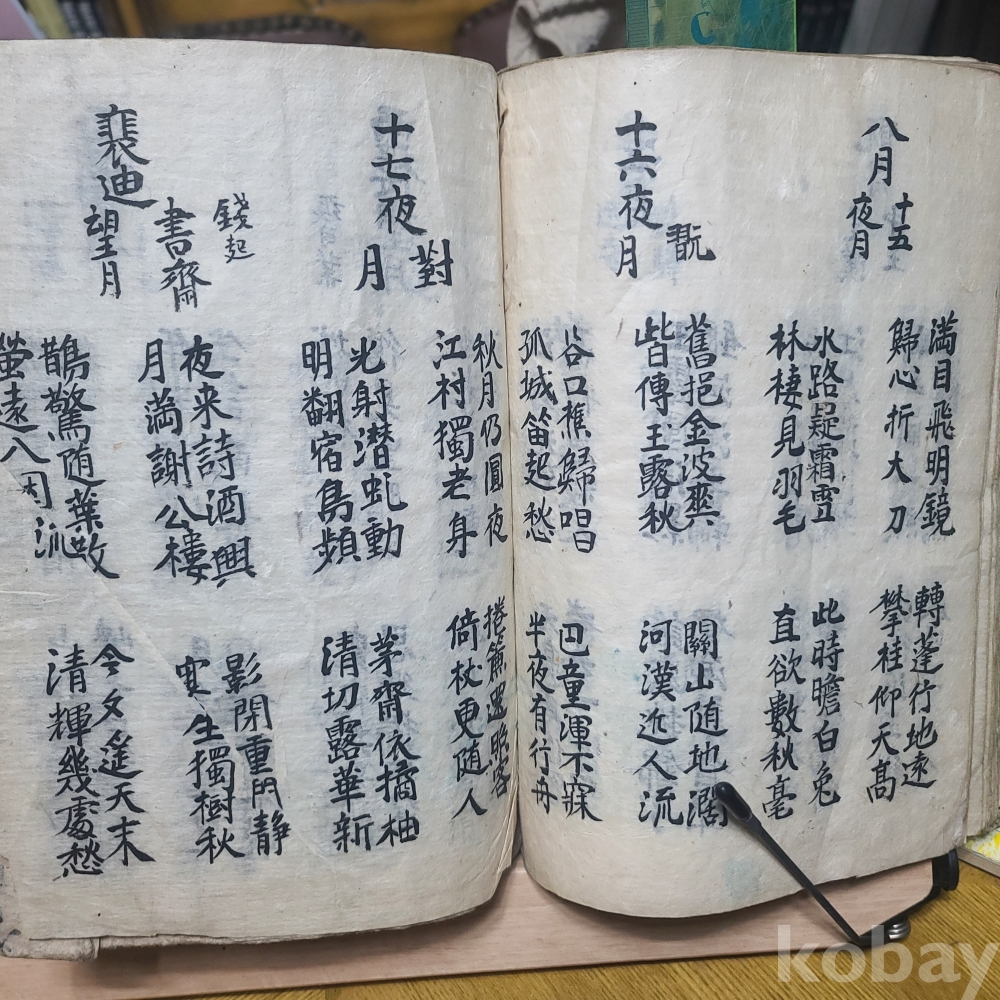 八月
十五
夜月
満目飛明鏡
歸心折大刀
轉蓬行地遠
攀桂仰天髙
水路疑霜雪
林棲見羽毛
此時瞻白兎
直欲數秋毫
十六夜
翫
月
舊挹金波爽
皆傳玉露秋
關山随地濶
河漢近人流
谷口樵歸唱
孤城笛起愁
巴童渾不寐
半夜有行舟
十七夜
對
月
秋月仍圓夜
江村獨老身
捲簾還照客
倚杖更随人
光射潜虬動
明翻宿鳥頻
茅齋依橘柚
清切露華新
錢起
裴迪
書齋
望月
夜来詩酒興
月満謝公樓
影閉重門静
寒生獨樹秋
鵲驚随葉散
螢遠入流
今夕遥天末
清輝幾處愁
kobay